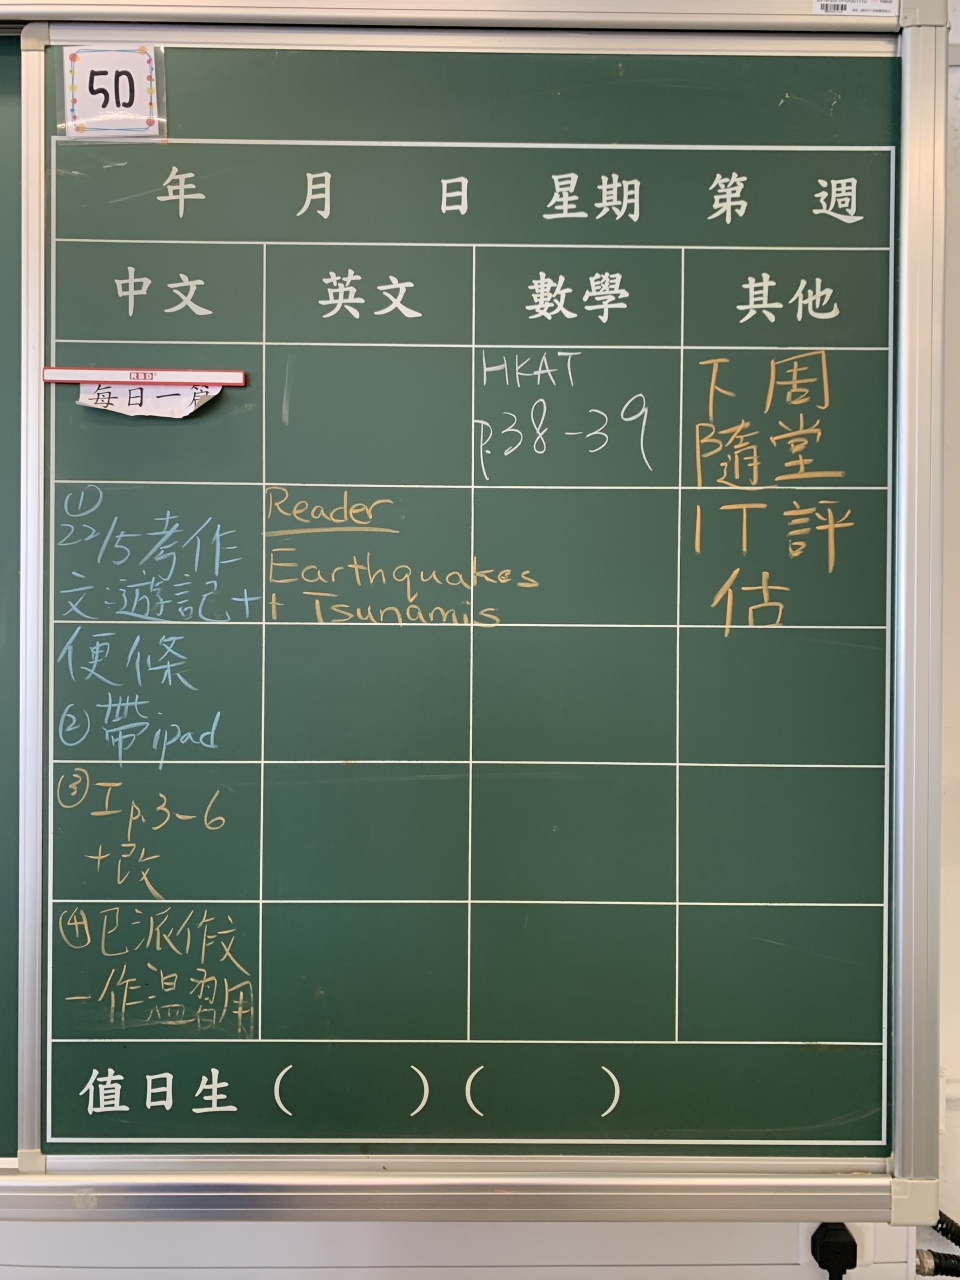 5D
年 月 日 星期 第 週
中文 英文 數學 其他
RBD
每日一篇
HKAT
p.38-39
下周
隨堂
IT評
估
①
22/5考作
文:遊記+
便條
②帶ipad
③工p.3-6
+改
④已派作文
一作溫習用
Reader
Earthquakes
+ Tsunamis
值日生 ( ) ( )